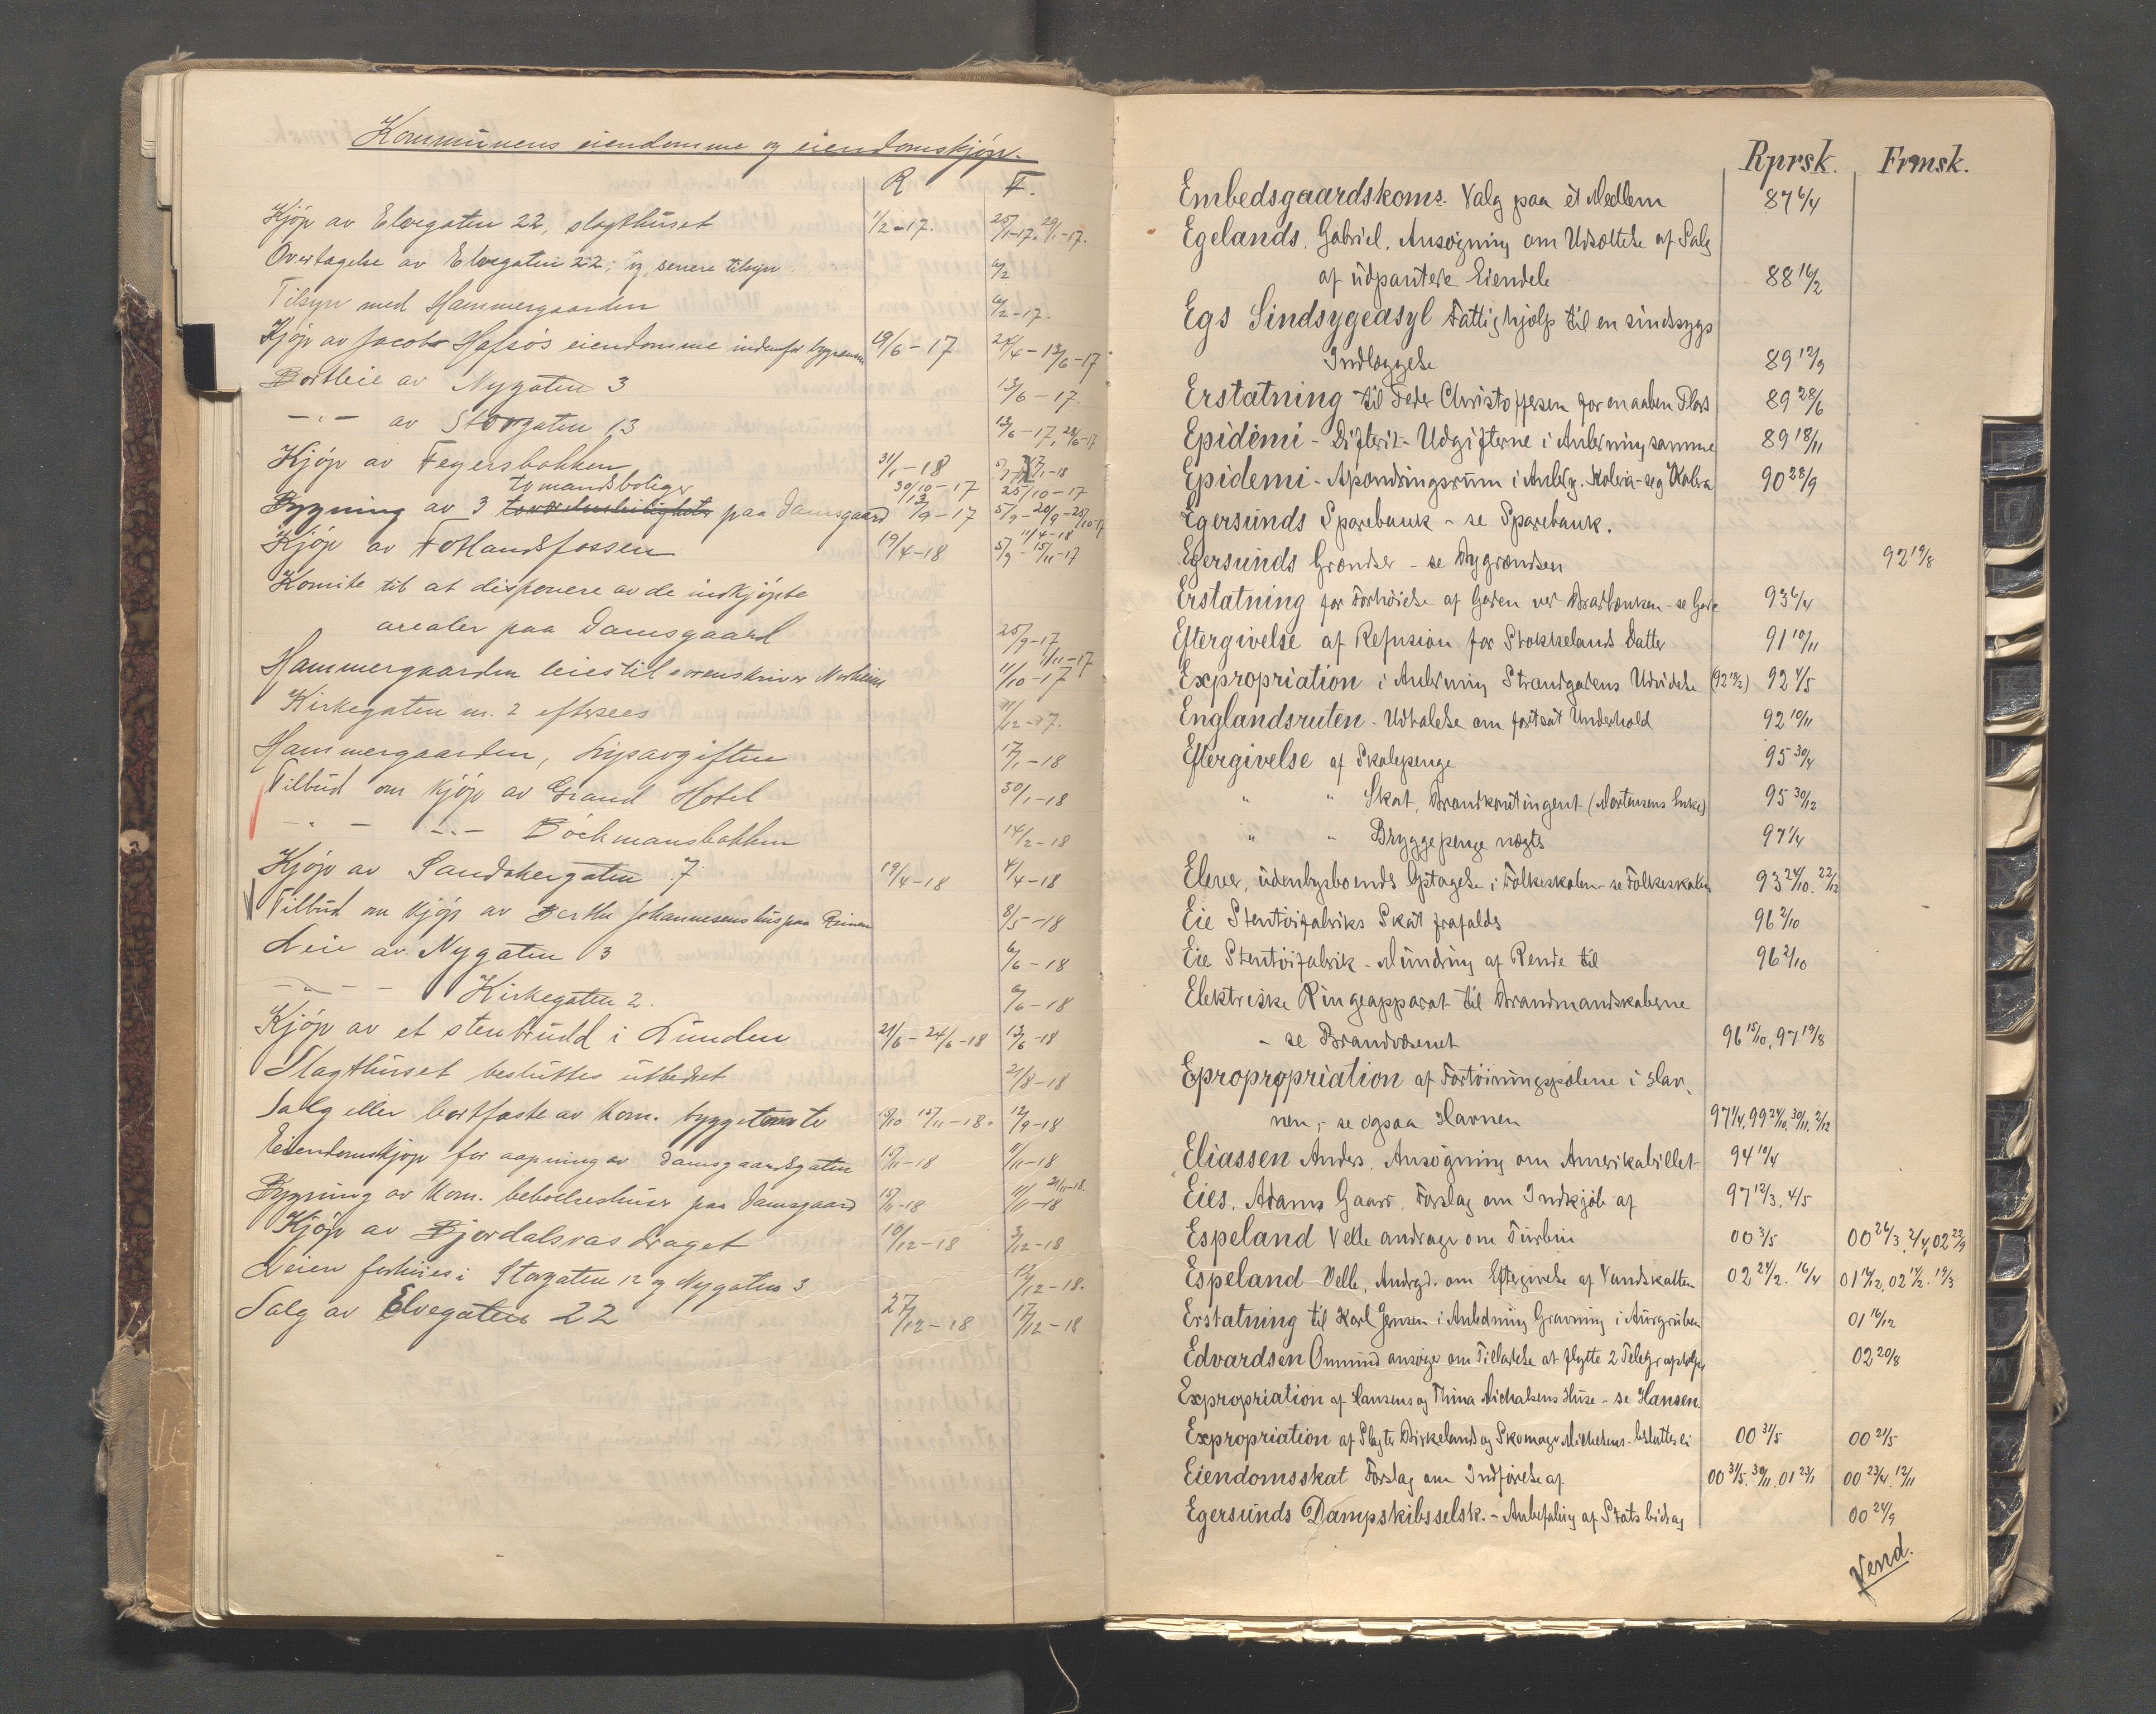 Kommunens eiendomme og eiendomskjøp.
R F.
Kjøp av Elvegaten 22, slagthuset 1/2-17. 25/1-17. 29/1-17.
Overtagelse av Elvegaten 22; og senere tilsyn 6/2
Tilsyn med Hammergaarden 6/2-17.
Kjøp av Jacob Hafsøs eiendomme indenfor 19/6-17 24/4-13/6-17
Bortleie av Nygaten 3 13/6-17.
-"- av Storgaten 13 13/6-17,
Kjøp av Feyersbakken 31/1-18
tomandsboliger 30/10-17 25/10-17
Bygning av 3 paa Damsgaard 13/9-17 5/9-20/9-25/10-17
11/4-18
Kjøp av Fotlandsfossen 19/4-18 5/9-15/11-17
Komite til at disponere av de indkjøpte
arealer paa Damsgaard 25/9-17
1/11-17
Hammergaarden leies til sorenskriver 11/10-17
Kirkegaten nr. 2 eftersees
Hammergaarden, 17/1-18
Tilbud om kjøp av Grand Hotel 30/1-18
-"- -"- Bøckmansbakken 14/2-18
Kjøp av Sandakergaten 7 19/4-18 4/4-18
Tilbud om kjøp av Berthe Johannesens hus paa 8/5-18
Leie av Nygaten 3 6/6-18
-"- Kirkegaten 2. 6/6-18
Kjøp av et stenbrudd i Lunden 21/6-24/6-18 13/6-18
Slagthuset besluttes utbedret 21/8-18
Salg eller bortfæste av kom. byggetomte 15/10 15/11-18. 12/9-18
Eiendomskjøp for aapning av Damsgaardsgaten 15/11-18 11/11-18
Bygning av kom. beboelseshuser paa Damsgaard 15/11-18 11/11-18 21/11-18.
Kjøp av Bjerdalsvasdraget 10/12-18 3/12-18
Leien forhøies i Storgaten 12 og Nygaten 3 12/12-18.
Salg av Elvegaten 22 27/12-18 17/12-18
Rprsk. Frmsk.
Embedsgaardskoms. Valg paa et Medlem 87 6/4
Egelands, Gabriel, Ansøgning om Udsættelse af Salg
af udpantede Eiendele 88 16/2
Egs Sindsygeasyl Fattighjælp til en sindssygs
Indlæggelse 89 12/9
Erstatning til Peder Christoffersen for en aaben Plads 89 28/6
Epidemi - Difterit - Udgifterne i Anledning samme 89 18/11
Epidemi - Afsondringsrum i Anledg. Kolera - seg Kolera 90 28/9
Egersunds Sparebank - se Sparebank.
Egersunds Grændser - se Bygrændsen 92 19/8
Erstatning for Forhøielse af Gaden ved Brarbænken - se Gade 93 6/4
Eftergivelse af Refusion for Stokkelands Datter 91 10/11
Expropriation i Anledning Strandgadens Udvidelse (92 19/2) 92 4/5
Englandsruten - Udtalelse om fortsat Underhold 92 19/11
Eftergivelse af Skolepenge 95 30/4
" " Skat, Brandkontingent (Mortensens Enke) 95 30/12
" " Bryggepenge nægtes 97 1/4
Elever, udenbysboende Optagelse i Folkeskolen - se Folkeskolen 93 24/10. 22/12
Eie Stentøifabriks Skat frafalds 96 2/10
Eie Stentøifabrik - Mundring af Rende til 96 2/10
Elektriske Ringeapparat til Brandmandskaberne
- se Brandvæsenet 96 15/10, 97 19/8
Epropropriation af Fortøiningspælene i Hav,
nen, - se ogsaa Havnen 97 1/4, 99 24/10, 30/11, 2/12
Eliassen Anders. Ansøgning om Amerikabillet 94 10/4
Eies, Adams Gaard, Forslag om Indkjøb af 97 12/3, 4/5
Espeland Velle andrager om Turbin 00 3/5 00 26/3, 2/4, 02 22/9
Espeland Velle, Andrgd. om Eftergivelse af Vandskatten 02 24/2. 16/4 01 16/12, 02 14/2. 14/3
Erstatning til Karl Jensen i Anledning Gravning i Aurgruben 01 16/12
Edvardsen Ommund ansøger om Tilladelse at flytte 2 Telegrafstolper 02 20/8
Expropriation af Hansens og Thina Michalsens Huse - se Hansen
Expropriation af Slagter Birkeland og Skomager Michelsens - besluttes ei 00 31/5 00 21/5
Eiendomsskat Forslag om Indførelse af 00 31/5. 30/11. 01 23/1 00 23/4. 12/11
Egersunds Dampskibsselsk. - Anbefaling af Statsbidrag 00 24/9
Vend.